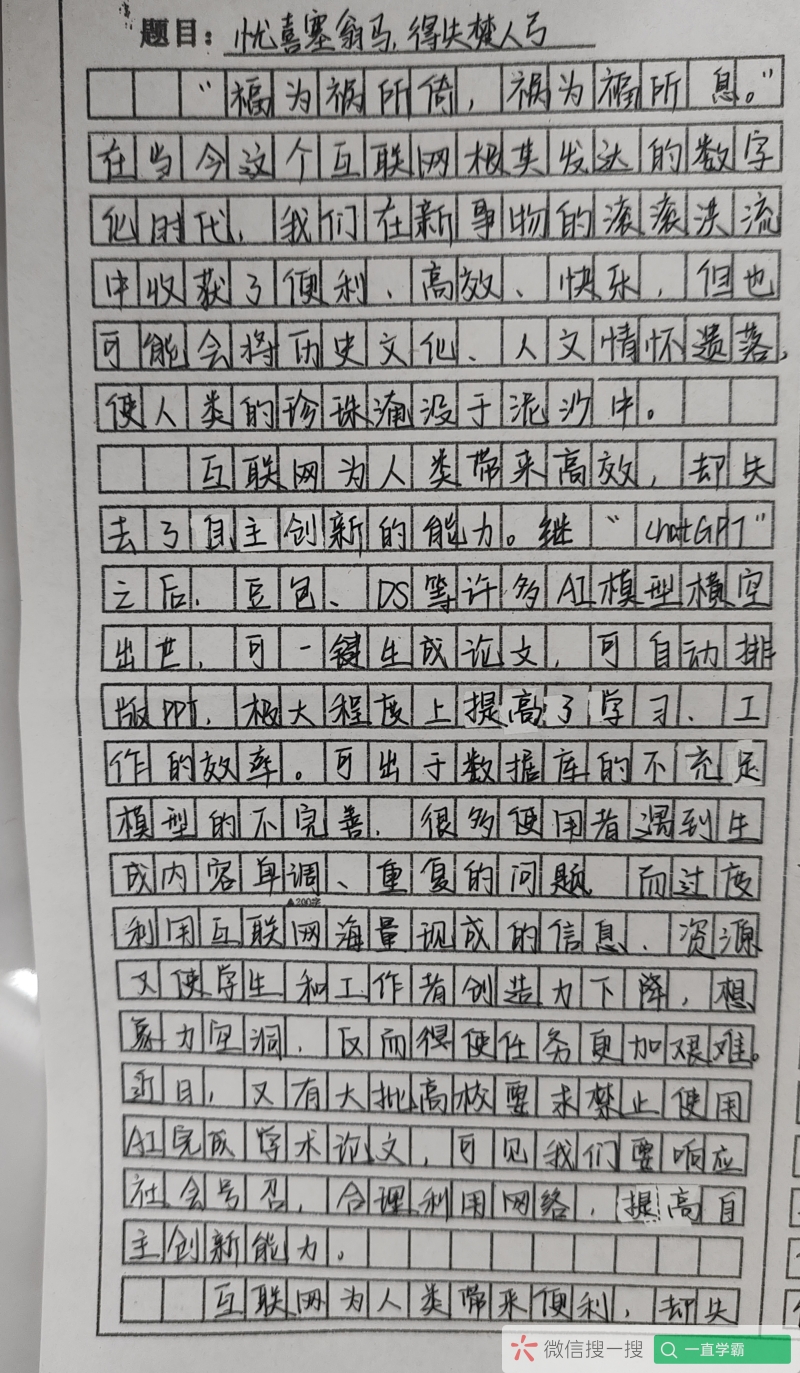 题目：忧喜塞翁马，得失楚人弓
“福为祸所倚，祸为福所息。”
在当今这个互联网极其发达的数字
化时代，我们在新事物的滚滚洪流
中收获了便利、高效、快乐，但也
可能会将历史文化、人文情怀遗落，
使人类的珍珠淹没于泥沙中。
互联网为人类带来高效，却失
去了自主创新的能力。继“ChatGPT”
之后，豆包、DS等许多AI模型横空
出世，可一键生成论文，可自动排
版PPT，极大程度上提高了学习、工
作的效率。可出于数据库的不充足
模型的不完善，很多使用者遇到生
成内容单调、重复的问题 而过度
▲200字
利用互联网海量现成的信息、资源
又使学生和工作者创造力下降，想
象力空洞，反而得使任务更加艰难。
近日，又有大批高校要求禁止使用
AI完成学术论文，可见我们要响应
社会号召，合理利用网络，提高自
主创新能力。
互联网为人类带来便利，却失
微信搜一搜 一直学霸